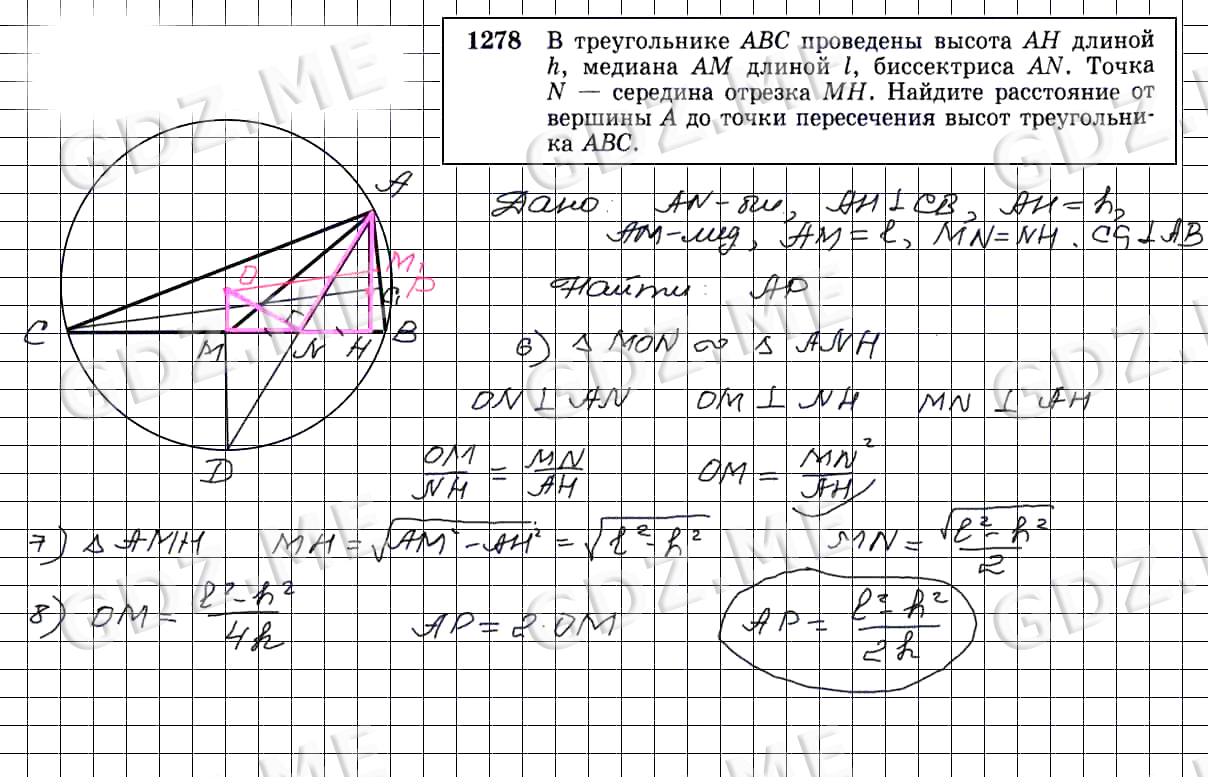 1278 В треугольнике ABC проведены высота AH длиной
h, медиана AM длиной l, биссектриса AN. Точка
N — середина отрезка MH. Найдите расстояние от
вершины A до точки пересечения высот треугольни-
ка ABC.
Дано: AN-бис, AH⊥CB, AH=h,
AM-мед, AM=l, MN=NH. CC₁⊥AB
Найти: AP
A
O
M₁
C₁ P
C
M N H B
D
6) Δ MON ∾ Δ ANH
ON ⊥ AN OM ⊥ NH MN ⊥ AH
OM/NH = MN/AH OM = MN²/AH
7) Δ AMH MH = √(AM² - AH²) = √(l² - h²) MN = √(l² - h²)/2
8) OM = (l² - h²)/4h AP = 2·OM AP = (l² - h²)/2h
GDZ.ME
GDZ.ME
GDZ.ME
GDZ.ME
GDZ.ME
GDZ.ME
GDZ.ME
GDZ.ME
GDZ.ME
GDZ.ME
GDZ.ME